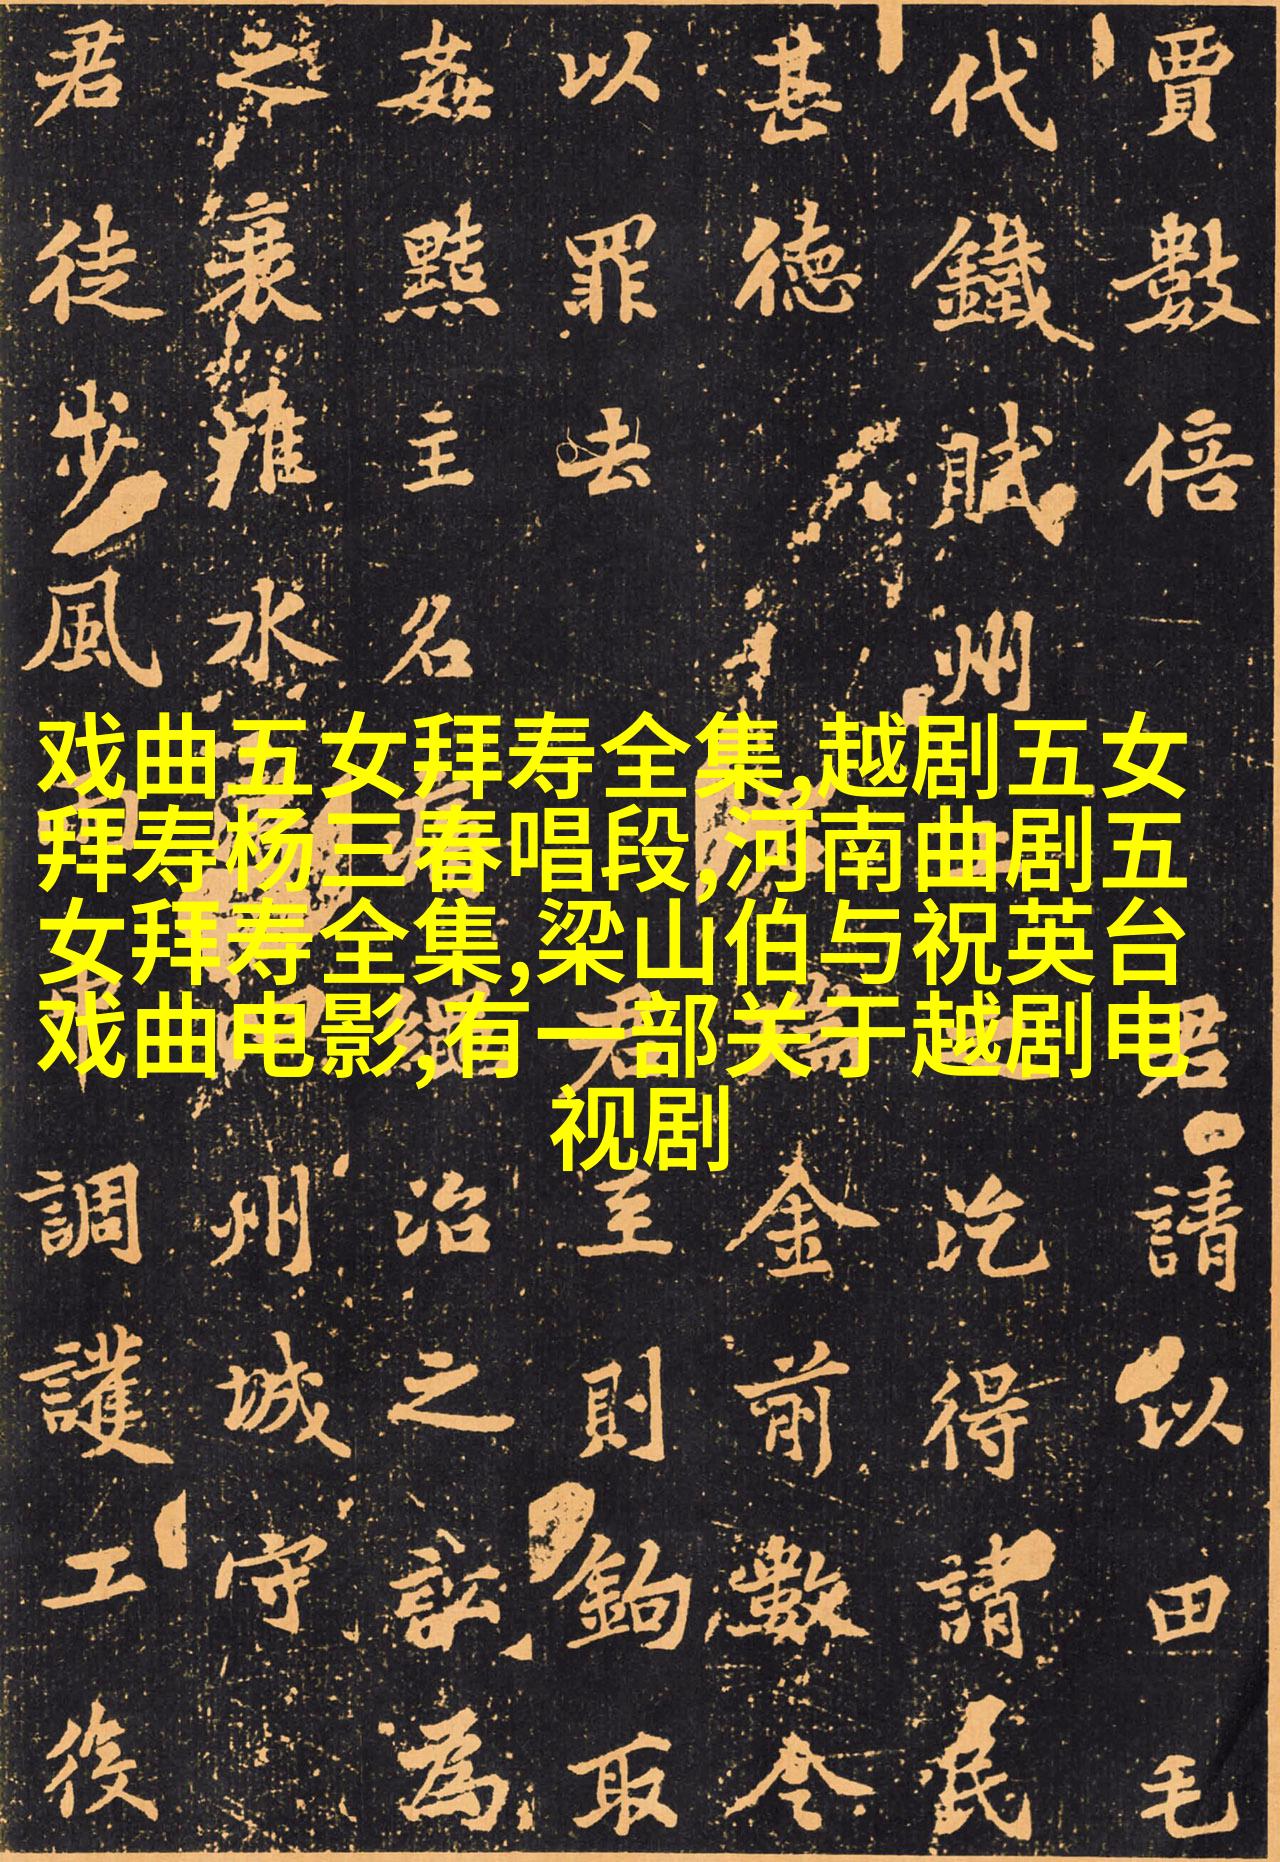 賈數倍君請以田毛
代鐵賦州汔得請民
甚德端金前數令
以罪去君至則鉤取
姦黠主名治之訟為
之衰水州城守
君徒步風調護工役
戏曲五女拜寿全集,越剧五女
拜寿杨三春唱段,河南曲剧五
女拜寿全集,梁山伯与祝英台
戏曲电影,有一部关于越剧电
视剧